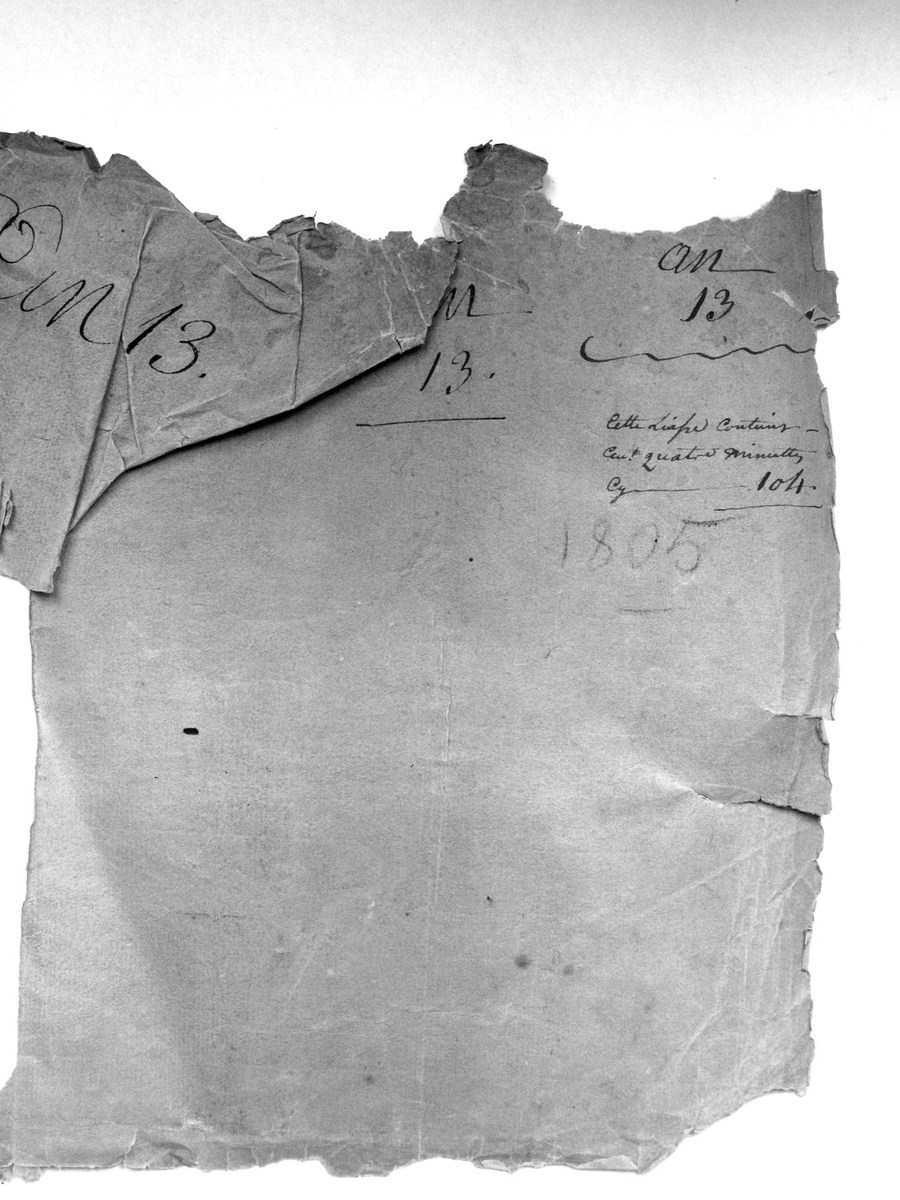 An 13.
n
13.
an
13
Cette Liasse Contient
Cent quatre Minuttes
Cy 104
1805